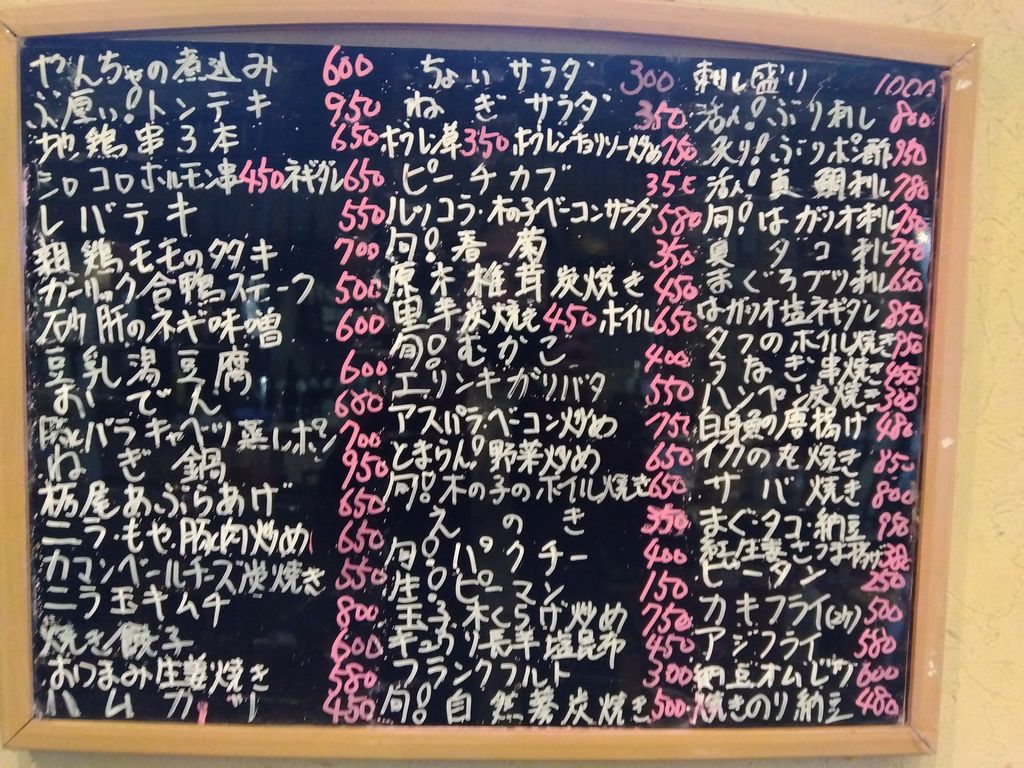 やんちゃの煮込み 600
ぶ厚い!トンテキ 950
地鶏串3本 650
シロコロホルモン串450ネギダレ650
レバテキ 550
親鶏モモのタタキ 700
ガーリック合鴨ステーク 500
砂肝のネギ味噌 600
豆乳湯豆腐 600
おでん 680
豚バラキャベツ蒸しポン 700
ねぎ鍋 950
栃尾あぶらあげ 650
ニラ・もや・豚肉炒め 650
カマンベールチーズ炭焼き 550
ニラ玉キムチ 800
焼き餃子 600
おつまみ生姜焼き 580
ハムカツ 450
ちょいサラダ 300
ねぎサラダ 350
ホウレン草350ホウレンチョリソー炒め750
ピーチカブ 350
ルッコラ・木の子ベーコンサラダ 580
旬!春菊 350
原木椎茸炭焼き 450
里芋炭焼き450ホイル650
旬!むかご 400
エリンギガリバタ 550
アスパラ・ベーコン炒め 750
とまらん!野菜炒め 650
旬!木の子のホイル焼き 650
えのき 350
旬!パクチー 400
生!ピーマン 150
玉子・木くらげ炒め 750
キュウリ長芋塩昆布 450
フランクフルト 300
旬!自然薯炭焼き 500
刺し盛り 1000
活〆!ぶり刺し 800
炙り!ぶりポン酢 950
活〆!真鯛刺し 780
旬!はガツオ刺し 750
真ダコ刺 750
まぐろブツ刺し 650
はガツオ塩ネギダレ 850
タラのホイル焼き 950
うなぎ串焼き 450
ハンペン炭焼き 300
白身魚の唐揚げ 480
イカの丸焼き 850
サバ焼き 800
まぐ・タコ・納豆 980
紅生姜さつま揚げ 380
ピータン 250
カキフライ(2ケ) 500
アジフライ 580
納豆オムレツ 600
焼きのり納豆 480